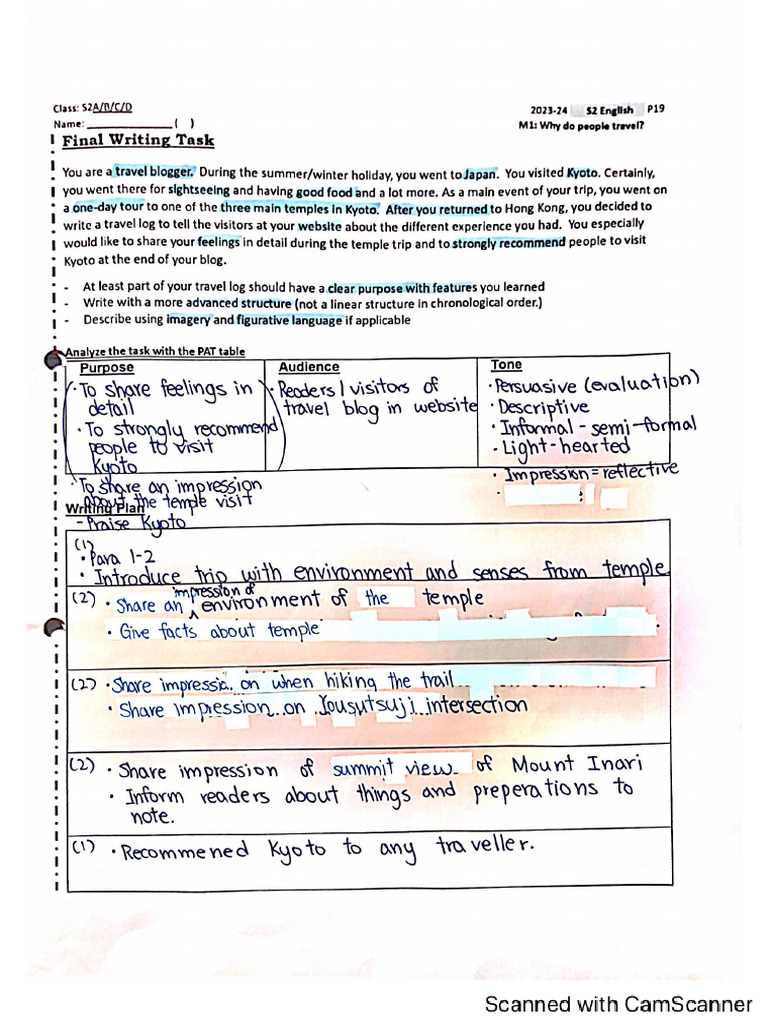 Class: S2A/B/C/D
2023-24 S2 English P19
Name: ____________ ( )
M1: Why do people travel?
Final Writing Task
You are a travel blogger. During the summer/winter holiday, you went to Japan. You visited Kyoto. Certainly,
you went there for sightseeing and having good food and a lot more. As a main event of your trip, you went on
a one-day tour to one of the three main temples in Kyoto. After you returned to Hong Kong, you decided to
write a travel log to tell the visitors at your website about the different experience you had. You especially
would like to share your feelings in detail during the temple trip and to strongly recommend people to visit
Kyoto at the end of your blog.
- At least part of your travel log should have a clear purpose with features you learned
- Write with a more advanced structure (not a linear structure in chronological order.)
- Describe using imagery and figurative language if applicable
Analyze the task with the PAT table
Purpose
· To share feelings in
detail
· To strongly recommend
people to visit
Kyoto
· To share an impression
about the temple visit
- Praise Kyoto
Audience
· Readers / visitors of
travel blog in website
Tone
· Persuasive (evaluation)
· Descriptive
· Informal - semi-formal
· Light-hearted
· Impression = reflective
Writing Plan
(1)
· Para 1-2
· Introduce trip with environment and senses from temple
(2) · Share an impression of environment of the temple
· Give facts about temple
(2) · Share impression when hiking the trail
· Share impression on Yousutsuji intersection
(2) · Share impression of summit view of Mount Inari
· Inform readers about things and preperations to
note.
(1) · Recommened Kyoto to any traveller.
Scanned with CamScanner